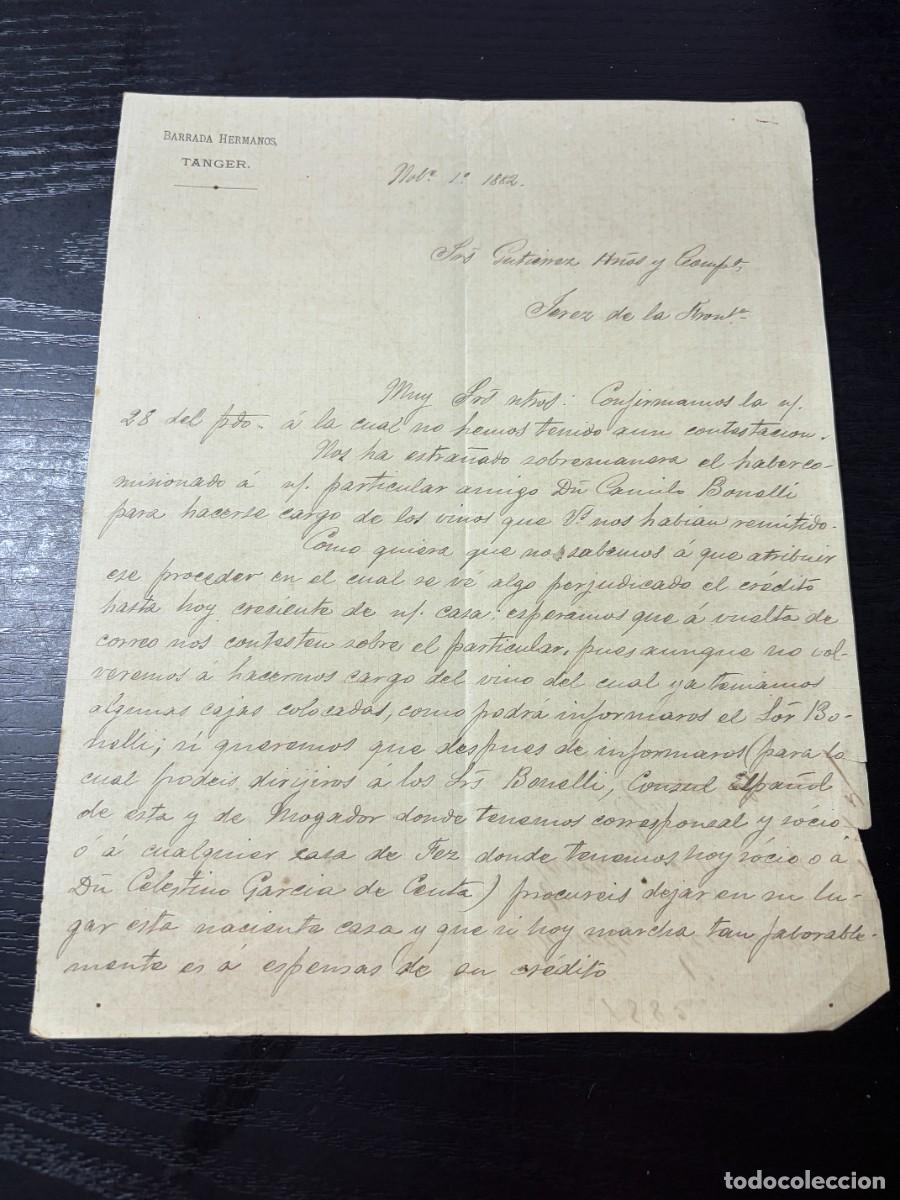 BARRADA HERMANOS,
TANGER.
Nobe. 1º 1882.
Srs Gutierrez Hños y Compª,
Jerez de la Frontª
Muy Srs ntros: Confirmamos la n/.
28 del pdo. á la cual no hemos tenido aun contestacion.
Nos ha estrañado sobremanera el haber co-
misionado á n/. particular amigo Dn Camilo Bonelli
para hacerse cargo de los vinos que Vs nos habian remitido.
Como quiera que no sabemos á que atribuir
ese proceder en el cual se vé algo perjudicado el crédito
hasta hoy cresiente de n/. casa; esperamos que á vuelta de
correo nos contesten sobre el particular, pues aunque no vol-
veremos á hacernos cargo del vino del cual ya teniamos
algunas cajas colocadas, como podrá informaros el Sor Bo-
nelli; si queremos que despues de informaros (para lo
cual podeis dirijiros á los Srs Bonelli, Consul Español
de esta y de Mogador donde tenemos corresponsal y sócio
ó á cualquier casa de Fez donde tenemos hoy sócio o á
Dn Celestino Garcia de Ceuta) procureis dejar en su lu-
gar esta naciente casa y que si hoy marcha tan faborable-
mente es á espensas de su crédito
todocoleccion